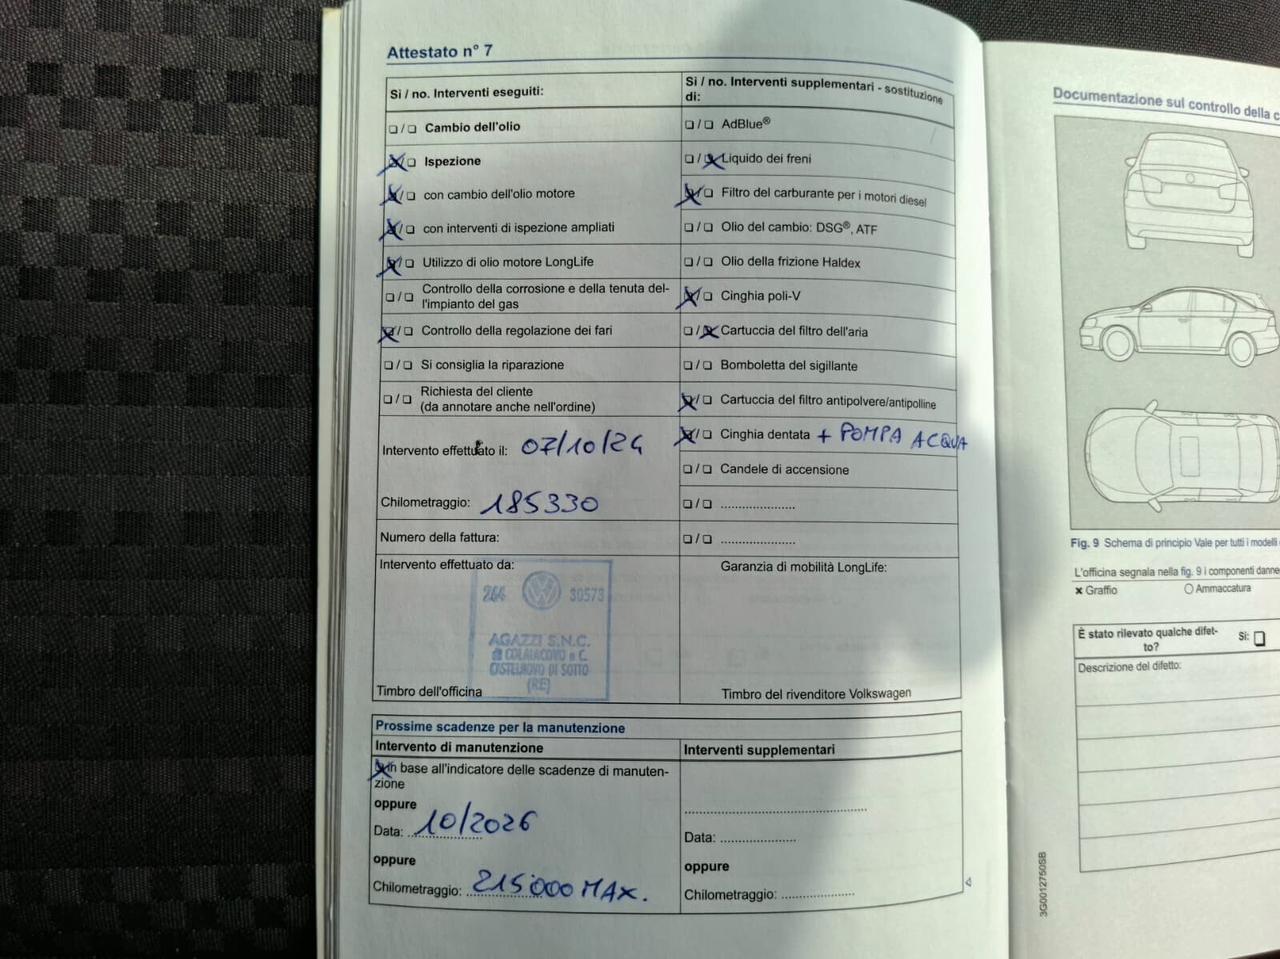 Attestato n° 7
Si / no. Interventi eseguiti:
❏ / ❏ Cambio dell'olio
☒ / ❏ Ispezione
☒ / ❏ con cambio dell'olio motore
☒ / ❏ con interventi di ispezione ampliati
☒ / ❏ Utilizzo di olio motore LongLife
❏ / ❏ Controllo della corrosione e della tenuta del-
l'impianto del gas
☒ / ❏ Controllo della regolazione dei fari
❏ / ❏ Si consiglia la riparazione
❏ / ❏ Richiesta del cliente
(da annotare anche nell'ordine)
Intervento effettuato il: 07/10/24
Chilometraggio: 185330
Numero della fattura:
Intervento effettuato da:
266 30573
AGAZZI S.N.C.
COLAIACOVO e C.
CASTELNOVO DI SOTTO
(RE)
Timbro dell'officina
Si / no. Interventi supplementari - sostituzione
di:
❏ / ❏ AdBlue®
❏ / ☒ Liquido dei freni
☒ / ❏ Filtro del carburante per i motori diesel
❏ / ❏ Olio del cambio: DSG®, ATF
❏ / ❏ Olio della frizione Haldex
☒ / ❏ Cinghia poli-V
❏ / ☒ Cartuccia del filtro dell'aria
❏ / ❏ Bomboletta del sigillante
☒ / ❏ Cartuccia del filtro antipolvere/antipolline
☒ / ❏ Cinghia dentata + POMPA ACQUA
❏ / ❏ Candele di accensione
❏ / ❏ ......................
❏ / ❏ ......................
Garanzia di mobilità LongLife:
Timbro del rivenditore Volkswagen
Prossime scadenze per la manutenzione
Intervento di manutenzione
☒ In base all'indicatore delle scadenze di manuten-
zione
oppure
Data: 10/2026
oppure
Chilometraggio: 215000 MAX.
Interventi supplementari
......................................................
Data: ......................
oppure
Chilometraggio: ......................
Documentazione sul controllo della c
Fig. 9 Schema di principio Vale per tutti i modelli
L'officina segnala nella fig. 9 i componenti danne
× Graffio ○ Ammaccatura
È stato rilevato qualche difet-
to? Si: ❏
Descrizione del difetto:
3G0012750SB